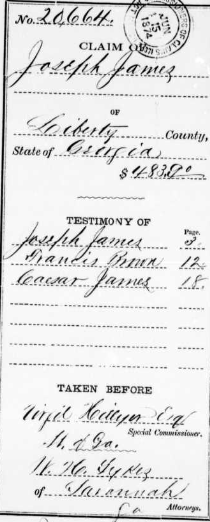 No. 20664.
CLAIM OF
Joseph James
OF
Liberty County,
State of Georgia
$483.00
TESTIMONY OF
Page.
Joseph James 3.
Francis Brown 12
Caesar James 18.
TAKEN BEFORE
Virgil Hillyer Esq
Special Commissioner.
of Ga.
W. W. Sykes
of Savannah
Ga Attorneys.